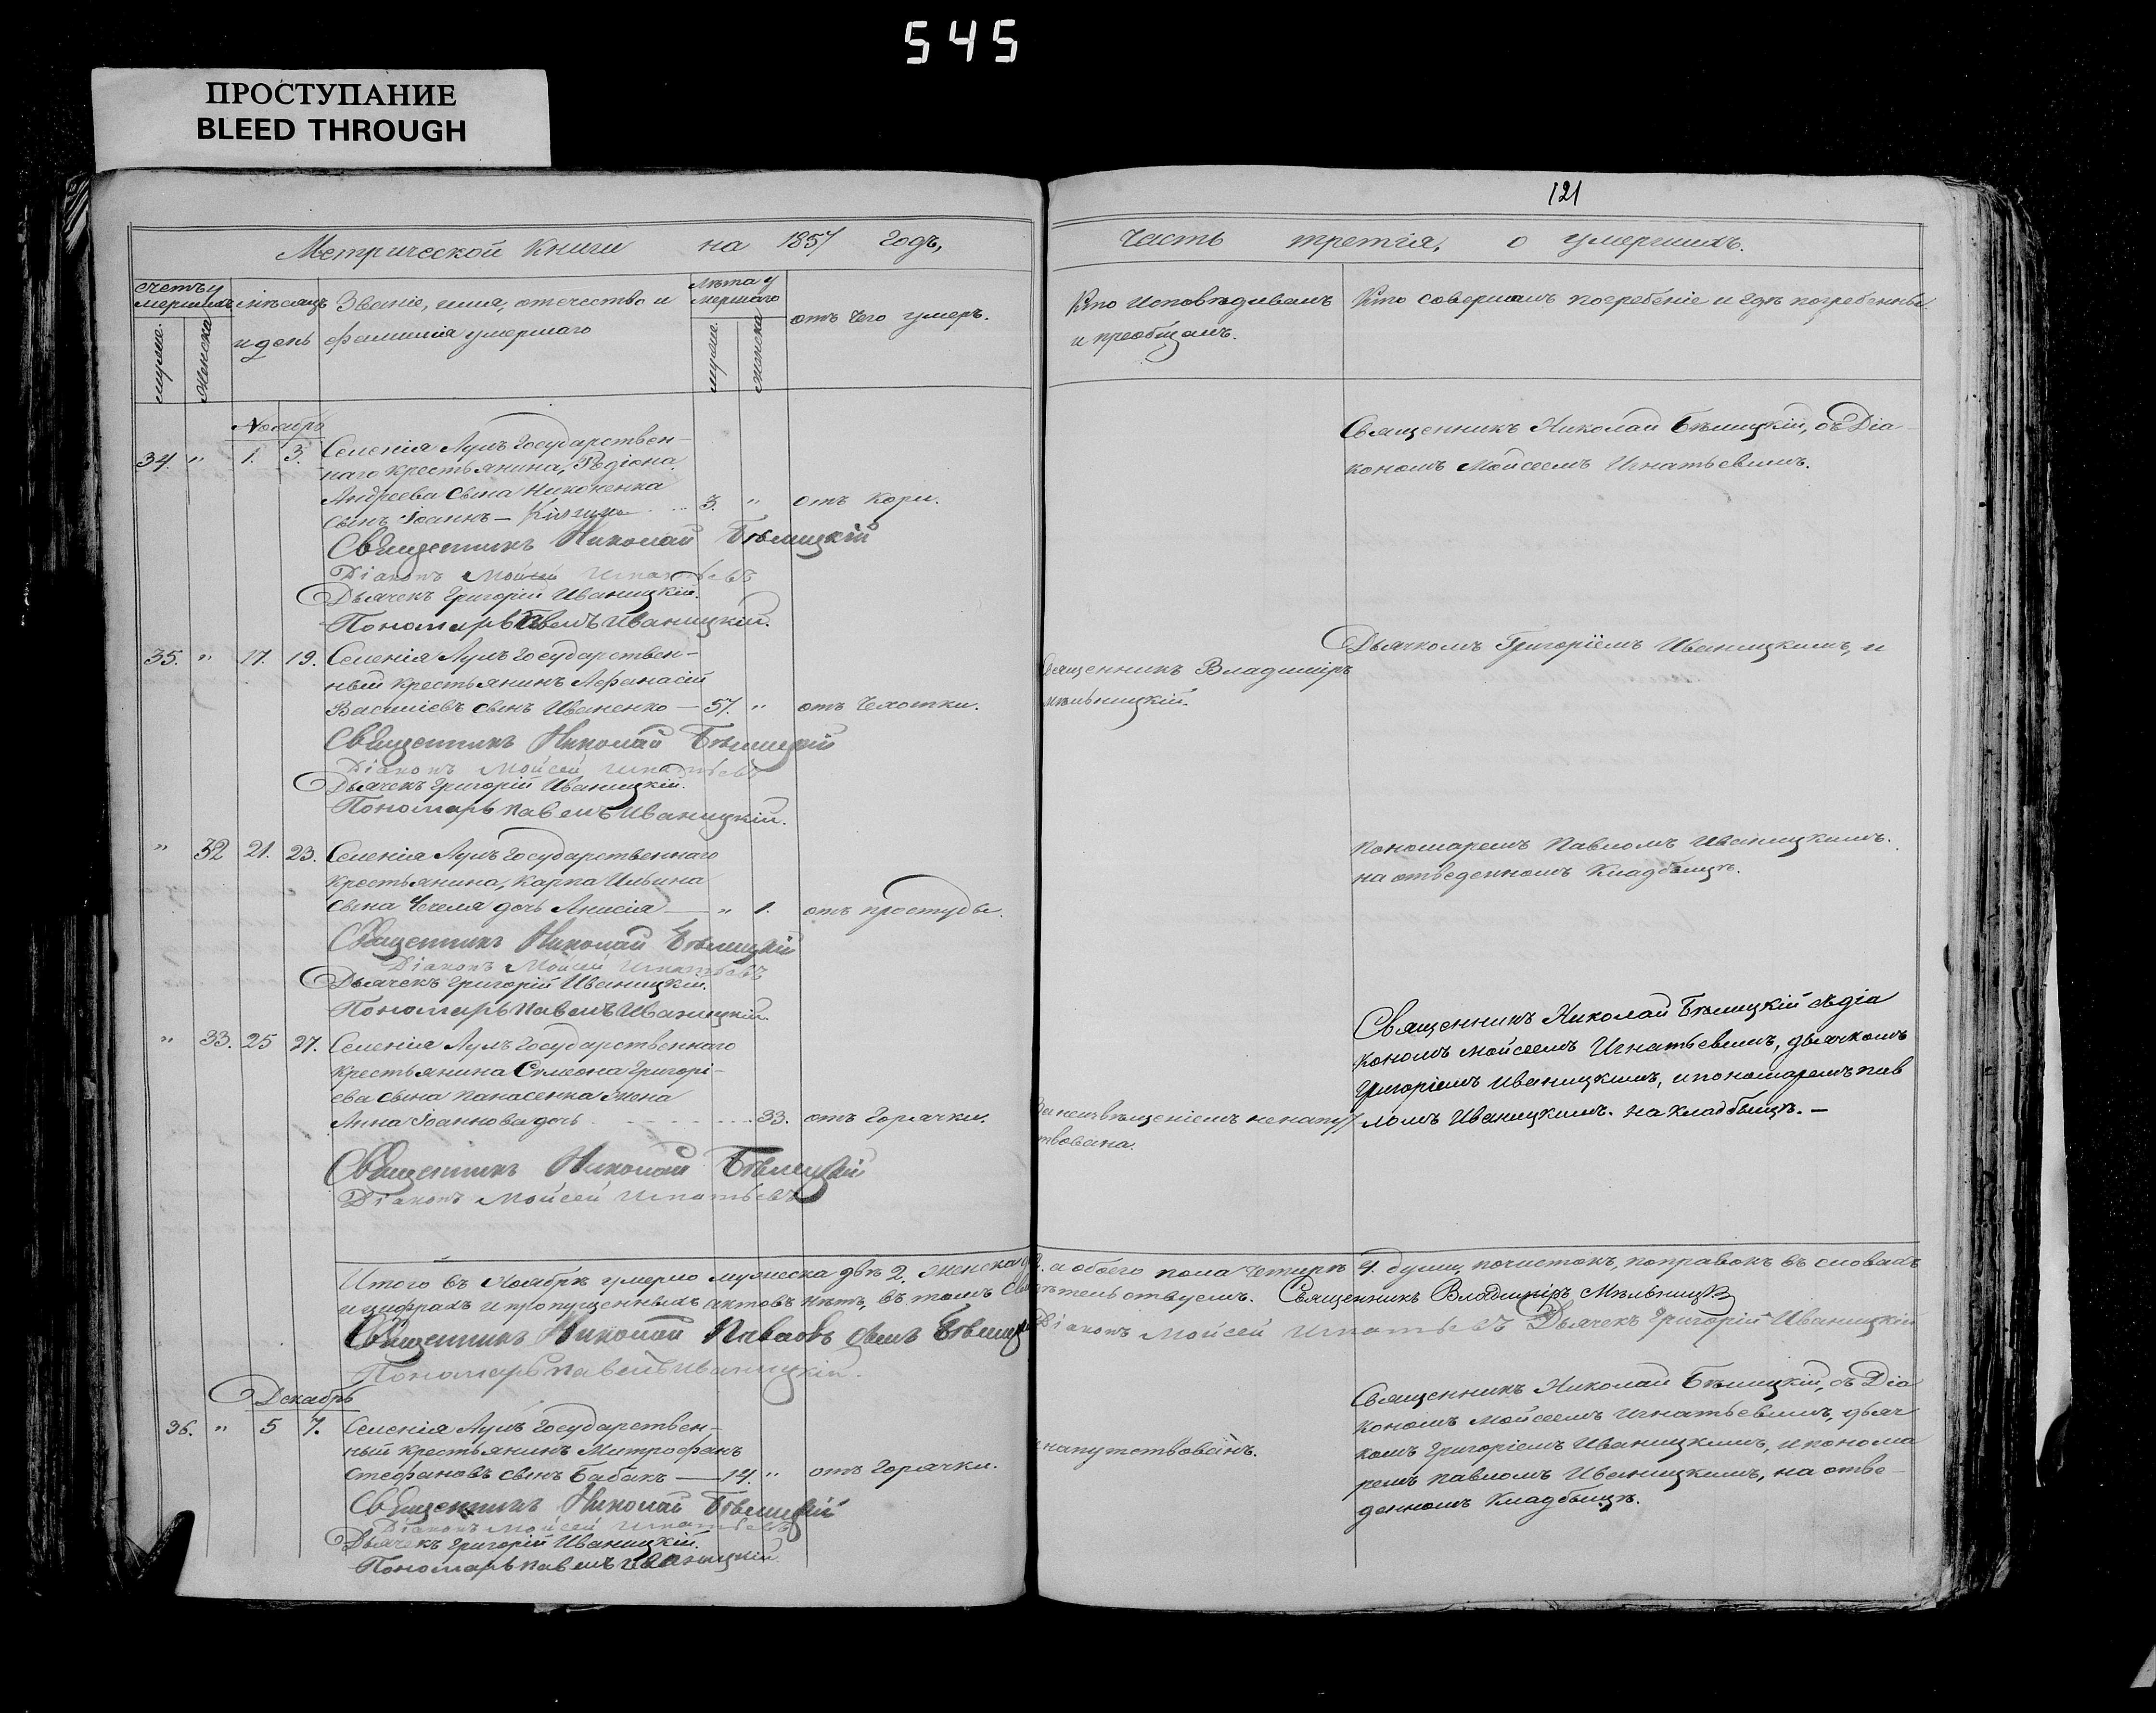 545
ПРОСТУПАНИЕ
BLEED THROUGH
121
Метрической Книги на 1857 годъ,
счетъ у
мершихъ
мужес.
женска
мѣсяцъ
и день
Званіе, имя, отечество и
фамилія умершаго
лѣта у
мершаго
мужес.
женска
отъ чего умеръ.
Ноябрь
34. " 1. 3. Селенія Лумъ Государствен-
наго крестьянина, Родіона
Андреева сына Никоненка
сынъ Іоаннъ — 3. " отъ Кори.
Священникъ Николай Бѣлицкій
Діаконъ Мойсей Игнатьевъ
Дьячекъ Григорій Иваницкій.
Пономарь Павелъ Иваницкій.
35. " 17. 19. Селенія Лумъ Государствен-
ный крестьянинъ Афанасій
Василіевъ сынъ Иваненко — 57. " отъ Чахотки.
Священникъ Николай Бѣлицкій
Діаконъ Мойсей Игнатьевъ
Дьячекъ Григорій Иваницкій.
Пономарь Павелъ Иваницкій.
" 32 21. 23. Селенія Лумъ Государственнаго
крестьянина, Карпа Ильина
сына Чечеля дочь Анисія — " 1. отъ простуды.
Священникъ Николай Бѣлицкій
Діаконъ Мойсей Игнатьевъ
Дьячекъ Григорій Иваницкій.
Пономарь Павелъ Иваницкій.
" 33. 25 27. Селенія Лумъ Государственнаго
крестьянина Симеона Григорі-
ева сына Панасенка жена
Анна Іоаннова дочь 33. отъ Горячки.
Священникъ Николай Бѣлицкій
Діаконъ Мойсей Игнатьевъ
Итого въ Ноябрѣ умерло мужеска двѣ 2. женска
и цифрахъ и пропущенныхъ актовъ нѣтъ, въ томъ
Священникъ Николай Павловъ сынъ Бѣлицкій
Пономарь Павелъ Иваницкій.
Декабрь
36. " 5 7. Селенія Лумъ Государствен-
ный крестьянинъ Митрофанъ
Стефановъ сынъ Бабакъ — 14. " отъ Горячки.
Священникъ Николай Бѣлицкій
Діаконъ Мойсей Игнатьевъ
Дьячекъ Григорій Иваницкій.
Пономарь Павелъ Иваницкій
Часть третія, о умершихъ.
Кто Исповѣдывалъ
и пріобщалъ.
Кто совершалъ погребеніе и гдѣ погребенны
Священникъ Николай Бѣлицкій, съ Діа-
кономъ Мойсеемъ Игнатьевымъ.
Дьячкомъ Григоріемъ Иваницкимъ, и
Священникъ Владиміръ
Мѣльницкій.
пономаремъ Павломъ Иваницкимъ.
на отведенномъ Кладбищѣ.
Священникъ Николай Бѣлицкій съ діа
кономъ Мойсеемъ Игнатьевымъ, дьячкомъ
Григоріемъ Иваницкимъ, и пономаремъ Пав
ломъ Иваницкимъ. на кладбищѣ. —
За неизвѣщеніемъ не напут
твована.
а обоего пола Четырѣ 4. души, почистокъ, поправокъ въ словахъ
свидѣтельствуемъ. Священникъ Владиміръ Мѣльницкій
Діаконъ Мойсей Игнатьевъ Дьячекъ Григорій Иваницкій
Священникъ Николай Бѣлицкій, съ Діа
кономъ Мойсеемъ Игнатьевымъ, дьяч
комъ Григоріемъ Иваницкимъ, и понома
ремъ Павломъ Иваницкимъ, на отве-
денномъ Кладбищѣ.
напутствованъ.